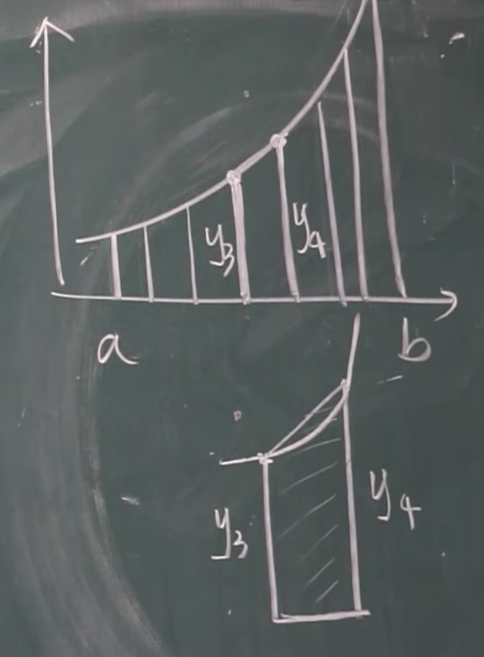 y₃ y₄
a b
y₃ y₄